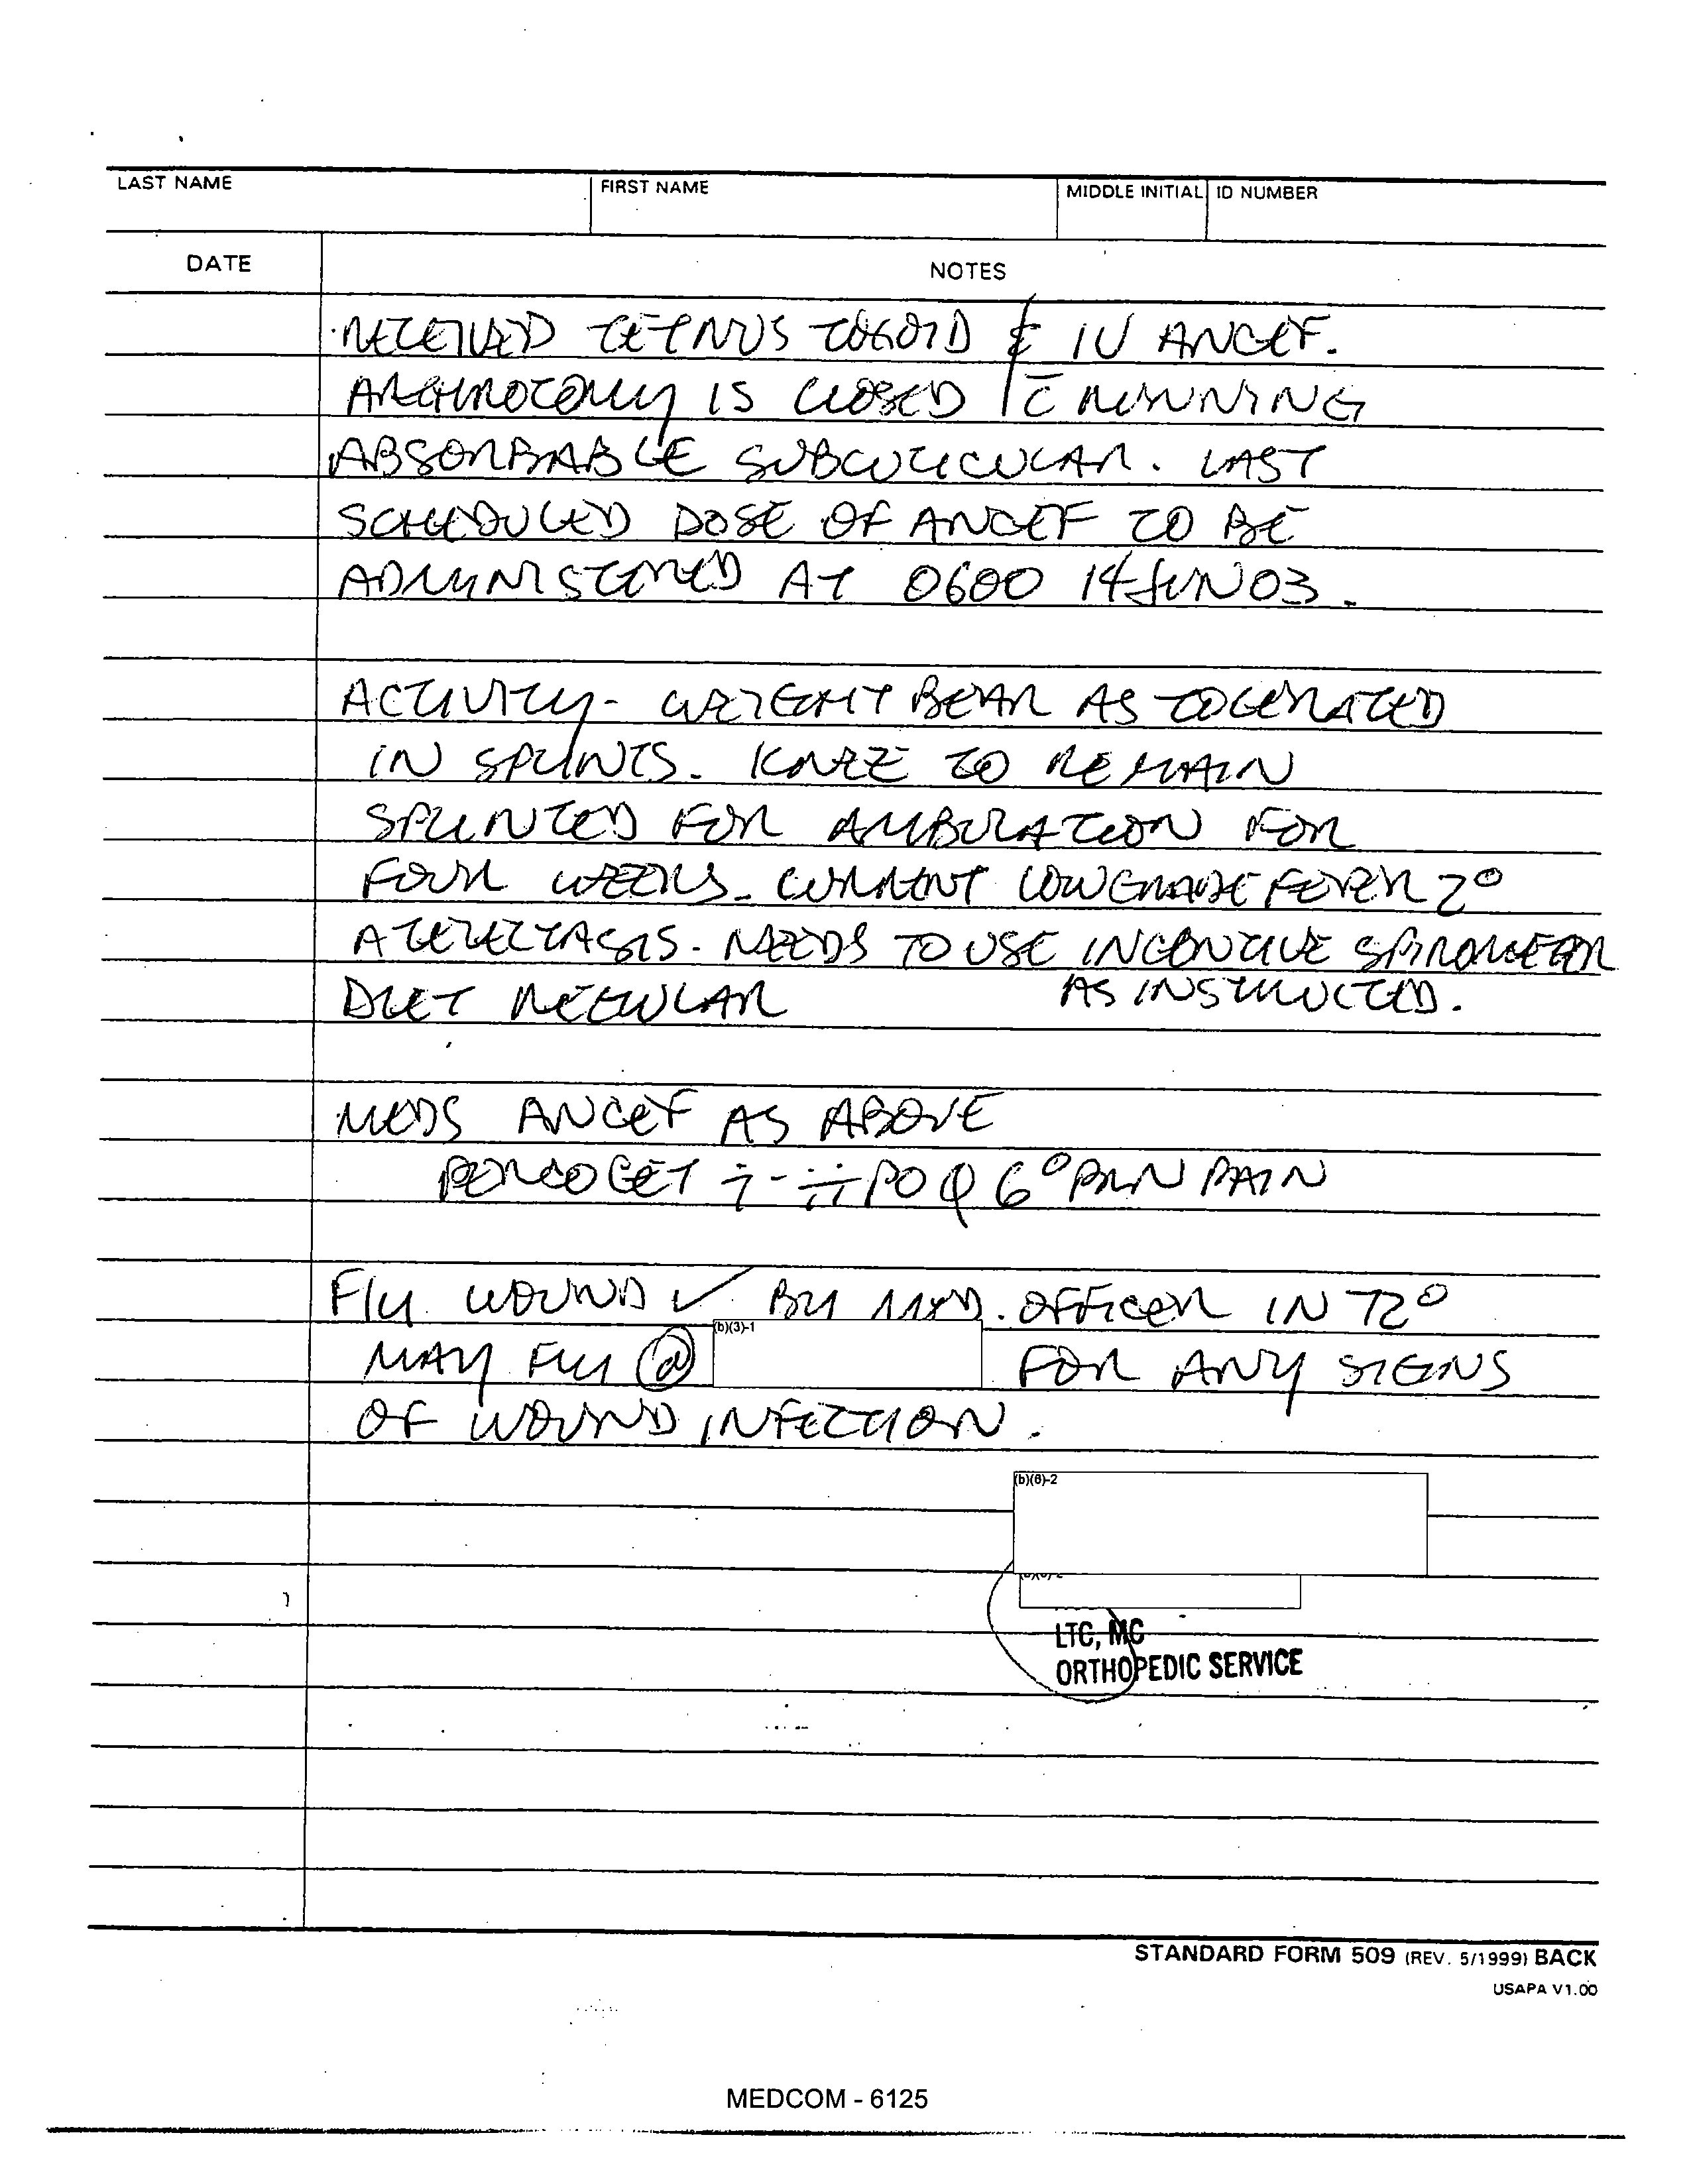 LAST NAME FIRST NAME MIDDLE INITIAL ID NUMBER
DATE NOTES
RECEIVED TETNUS TOXOID & IV ANCEF.
ARTHROTOMY IS CLOSED c̄ RUNNING
ABSORBABLE SUBCUTICULAR. LAST
SCHEDULED DOSE OF ANCEF TO BE
ADMINISTERED AT 0600 14 JUN 03.
ACTIVITY - WEIGHT BEAR AS TOLERATED
IN SPLINTS. KNEE TO REMAIN
SPLINTED FOR AMBULATION FOR
FOUR WEEKS. CURRENT LOW GRADE FEVER 2°
ATELECTASIS. NEEDS TO USE INCENTIVE SPIROMETER
AS INSTRUCTED.
DIET REGULAR
MEDS ANCEF AS ABOVE
PERCOCET i - ii PO Q 6° PRN PAIN
F/U WOUND ✓ BY MED. OFFICER IN 72°
(b)(3)-1
MAY F/U @ FOR ANY SIGNS
OF WOUND INFECTION.
(b)(6)-2
LTC, MC
ORTHOPEDIC SERVICE
STANDARD FORM 509 (REV. 5/1999) BACK
USAPA V1.00
MEDCOM - 6125